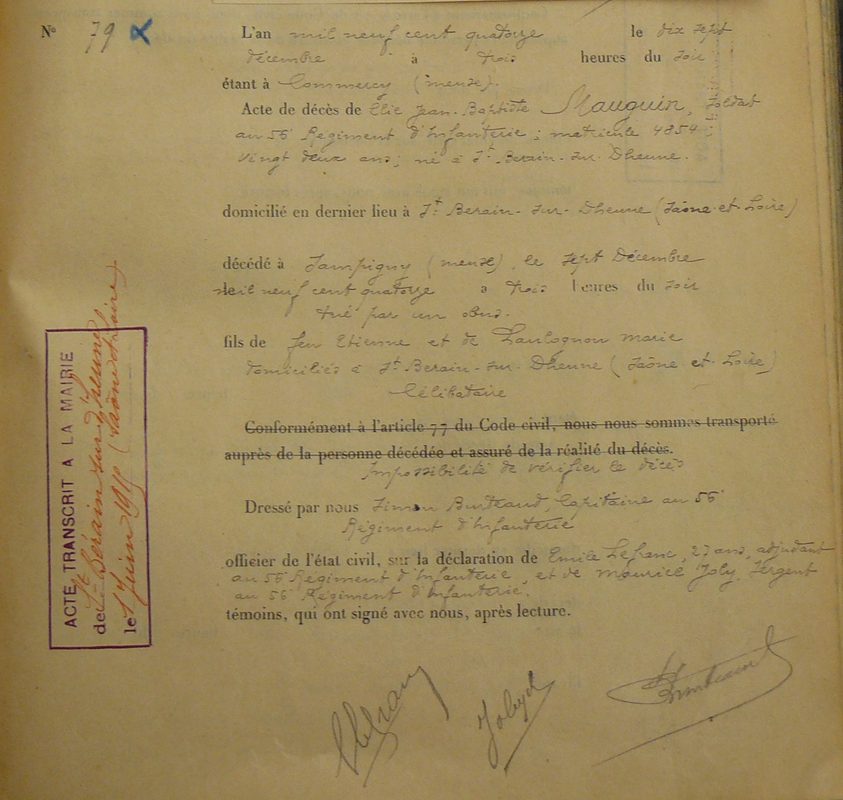 N° 79 L'an mil neuf cent quatorze le dix sept
décembre à trois heures du soir
étant à Commercy (meuse).
Acte de décès de Elie Jean-Baptiste Mauguin, soldat
au 56e Regiment d'Infanterie; matricule 4854;
vingt deux ans; né à St Berain-sur-Dheune.
domicilié en dernier lieu à St Berain-sur-Dheune (Saône et Loire)
décédé à Sampigny (meuse), le sept Décembre
mil neuf cent quatorze a trois heures du soir
tué par un obus.
fils de feu Etienne et de marie
domiciliés à St Berain-sur-Dheune (Saône et Loire)
Célibataire
Conformément à l'article 77 du Code civil, nous nous sommes transporté
auprès de la personne décédée et assuré de la réalité du décès.
Impossibilité de vérifier le décès
Dressé par nous Simon Capitaine au 56e
Régiment d'Infanterie
officier de l'état civil, sur la déclaration de Emile Lefranc, 27 ans, adjudant
au 56e Regiment d'Infanterie, et de maurice Joly, Sergent
au 56e Régiment d'Infanterie.
témoins, qui ont signé avec nous, après lecture.
ACTE TRANSCRIT A LA MAIRIE
de St Bérain sur Dheune
le 1 Juin (Saône et Loire)